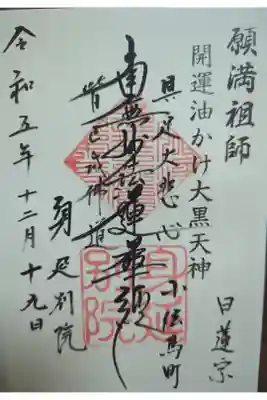 願満祖師
開運油かけ大黒天神
日蓮宗
小伝馬町
具足大悲心
南無妙法蓮華経
皆已成佛道
身延別院
令和五年十二月十九日
身延
別院